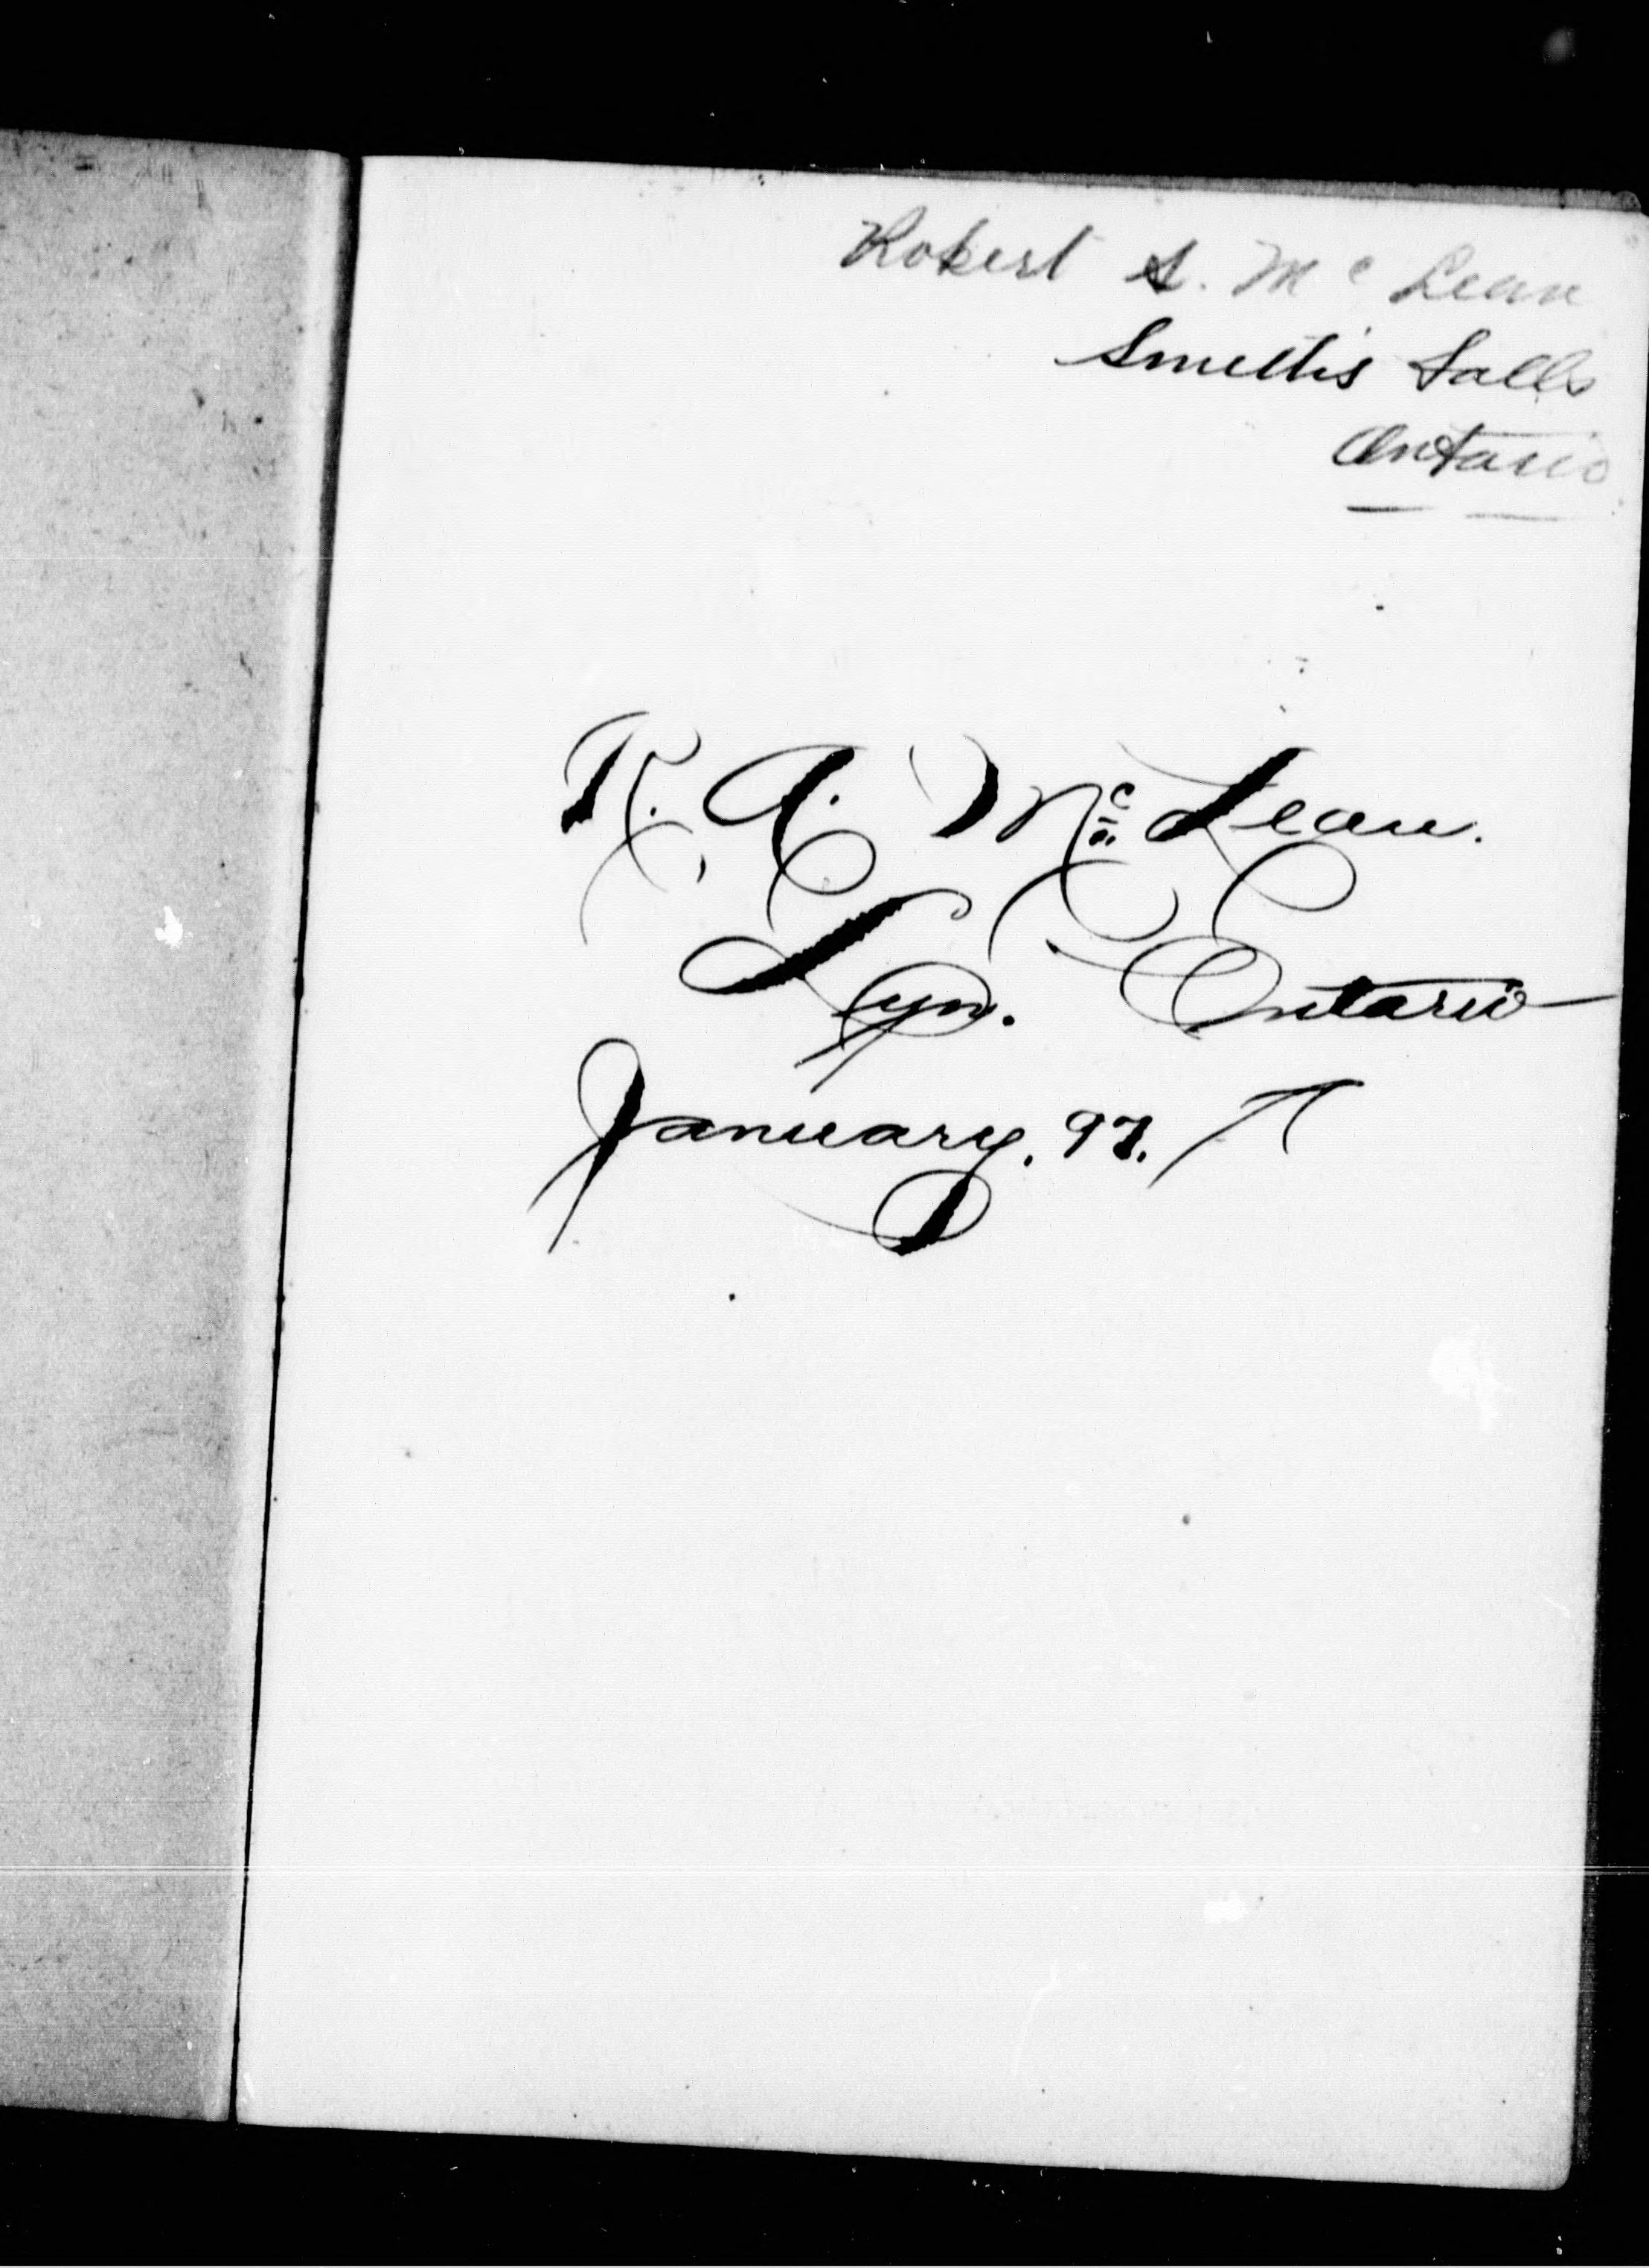 Robert A. Mc Lean
Smiths Falls
Ontario
R. A. Mc Lean.
Lyn. Ontario
January. 97.